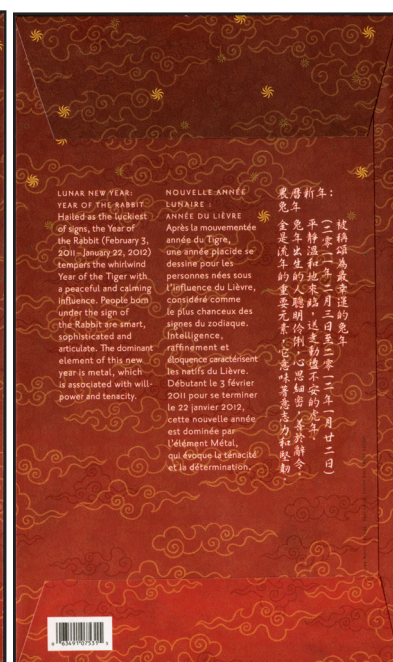 LUNAR NEW YEAR:
YEAR OF THE RABBIT
Hailed as the luckiest
of signs, the Year of
the Rabbit (February 3,
2011 – January 22, 2012)
tempers the whirlwind
Year of the Tiger with
a peaceful and calming
influence. People born
under the sign of
the Rabbit are smart,
sophisticated and
articulate. The dominant
element of this new
year is metal, which
is associated with will-
power and tenacity.
NOUVELLE ANNÉE
LUNAIRE :
ANNÉE DU LIÈVRE
Après la mouvementée
année du Tigre,
une année placide se
dessine pour les
personnes nées sous
l'influence du Lièvre,
considéré comme
le plus chanceux des
signes du zodiaque.
Intelligence,
raffinement et
éloquence caractérisent
les natifs du Lièvre.
Débutant le 3 février
2011 pour se terminer
le 22 janvier 2012,
cette nouvelle année
est dominée par
l'élément Métal,
qui évoque la ténacité
et la détermination.
農曆新年：
兔年
被稱頌為最幸運的兔年
(二零一一年二月三日至二零一二年一月廿二日)
平靜溫和地來臨，送走動盪不安的虎年。
兔年出生的人聰明伶俐，心思細密，善於辭令。
金是流年的重要元素，它意味著意志力和堅韌。
0 63491 07531 5